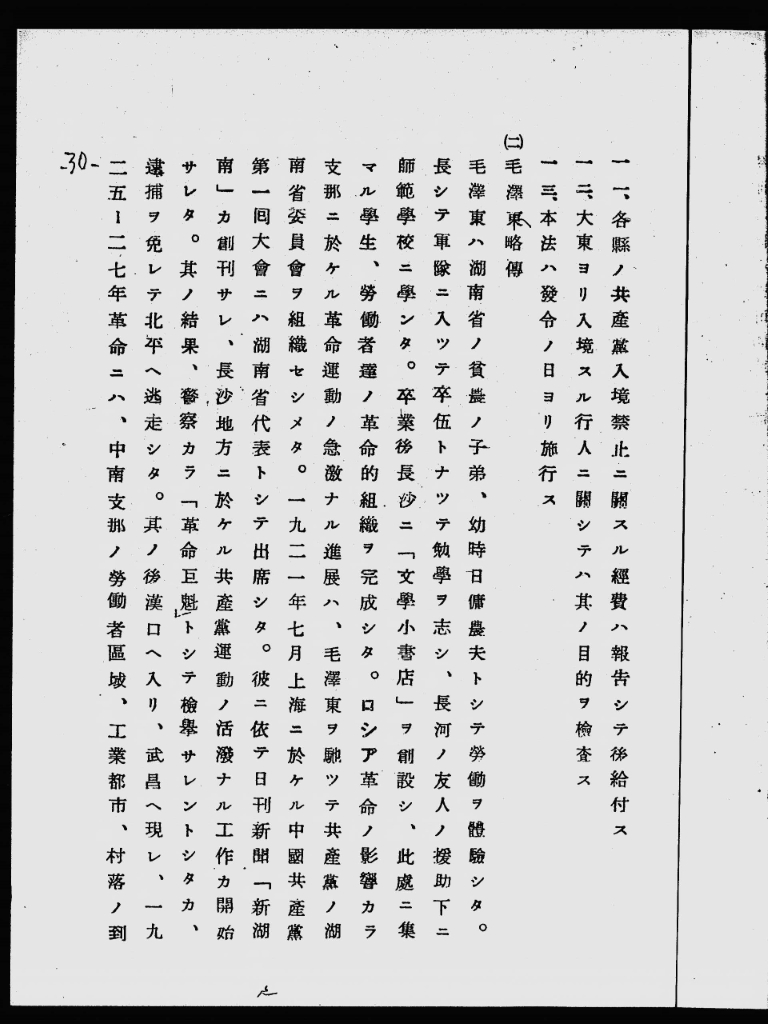 一一、各縣ノ共產黨入境禁止ニ關スル經費ハ報告シテ後給付ス
一二、大東ヨリ入境スル行人ニ關シテハ其ノ目的ヲ檢査ス
一三、本法ハ發令ノ日ヨリ施行ス
㈡毛澤東略傳
毛澤東ハ湖南省ノ貧農ノ子弟、幼時日傭農夫トシテ勞働ヲ體驗シタ。
長シテ軍隊ニ入ツテ卒伍トナツテ勉學ヲ志シ、長河ノ友人ノ援助下ニ
師範學校ニ學ンタ。卒業後長沙ニ「文學小書店」ヲ創設シ、此處ニ集
マル學生、勞働者達ノ革命的組織ヲ完成シタ。ロシア革命ノ影響カラ
支那ニ於ケル革命運動ノ急激ナル進展ハ、毛澤東ヲ馳ツテ共產黨ノ湖
南省委員會ヲ組織セシメタ。一九二一年七月上海ニ於ケル中國共產黨
第一囘大會ニハ湖南省代表トシテ出席シタ。彼ニ依テ日刊新聞「新湖
南」カ創刊サレ、長沙地方ニ於ケル共產黨運動ノ活潑ナル工作カ開始
サレタ。其ノ結果、警察カラ「革命巨魁」トシテ檢擧サレントシタカ、
逮捕ヲ免レテ北平ヘ逃走シタ。其ノ後漢口ヘ入リ、武昌ヘ現レ、一九
二五ー二七年革命ニハ、中南支那ノ勞働者區域、工業都市、村落ノ到
-30-